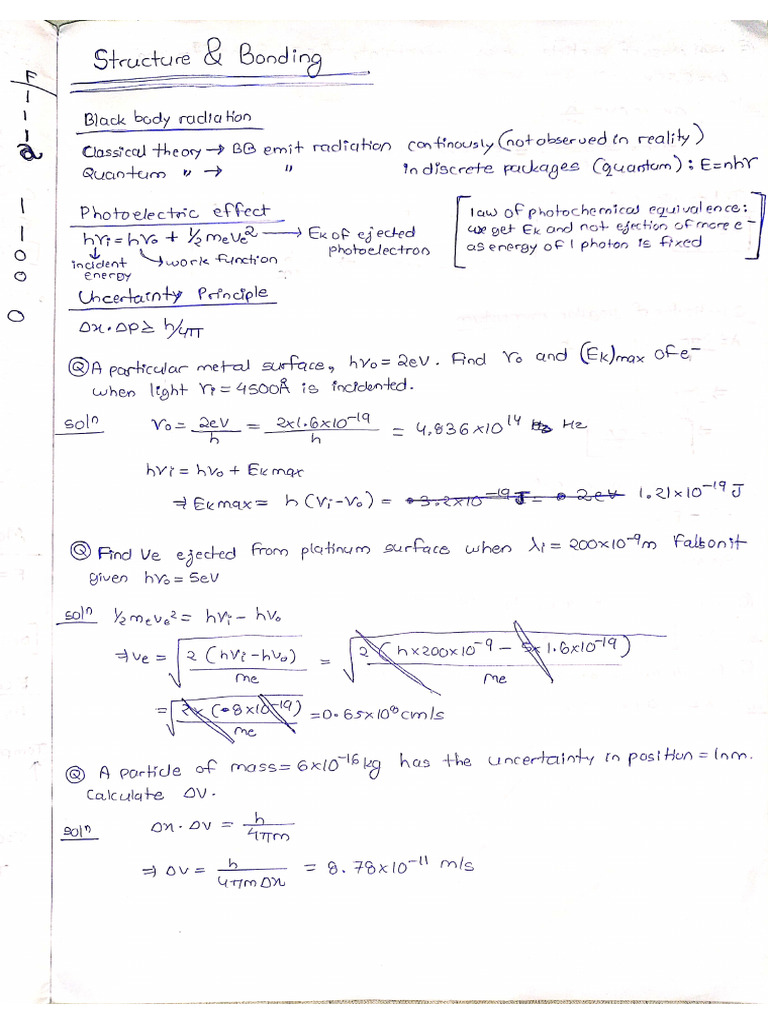 Structure & Bonding
F
1
1
1
2
1
1
0
0
0
Black body radiation
Classical theory → BB emit radiation continously (not observed in reality)
Quantum " → " in discrete packages (quantum) ; E=nhν
Photoelectric effect
hνi = hν₀ + ½ meve² → Ek of ejected photoelectron
incident energy
work function
[law of photochemical equivalence:
we get Ek and not ejection of more e-
as energy of 1 photon is fixed]
Uncertainty Principle
Δx.Δp ≥ h/4π
Q A particular metal surface, hν₀ = 2eV. Find ν₀ and (Ek)max of e-
when light νi = 4500Å is incidented.
solⁿ ν₀ = 2eV/h = 2×1.6×10⁻¹⁹/h = 4.836×10¹⁴ Hz
hνi = hν₀ + Ek max
⇒ Ek max = h(νi-ν₀) = 3.2×10⁻¹⁹ J = 2eV 1.21×10⁻¹⁹ J
Q Find Ve ejected from platinum surface when λi = 200×10⁻⁹m falls on it
given hν₀ = 5eV
solⁿ ½ meve² = hνi - hν₀
⇒ ve = √(2(hνi-hν₀)/me) = √(2(h×200×10⁻⁹ - 5×1.6×10⁻¹⁹)/me)
= √(2×(-8×10⁻¹⁹)/me) = 0.65×10⁸ cm/s
Q A particle of mass = 6×10⁻¹⁶kg has the uncertainty in position = 1nm.
Calculate ΔV.
solⁿ Δx.ΔV = h/4πm
⇒ ΔV = h/4πmΔx = 8.78×10⁻¹¹ m/s